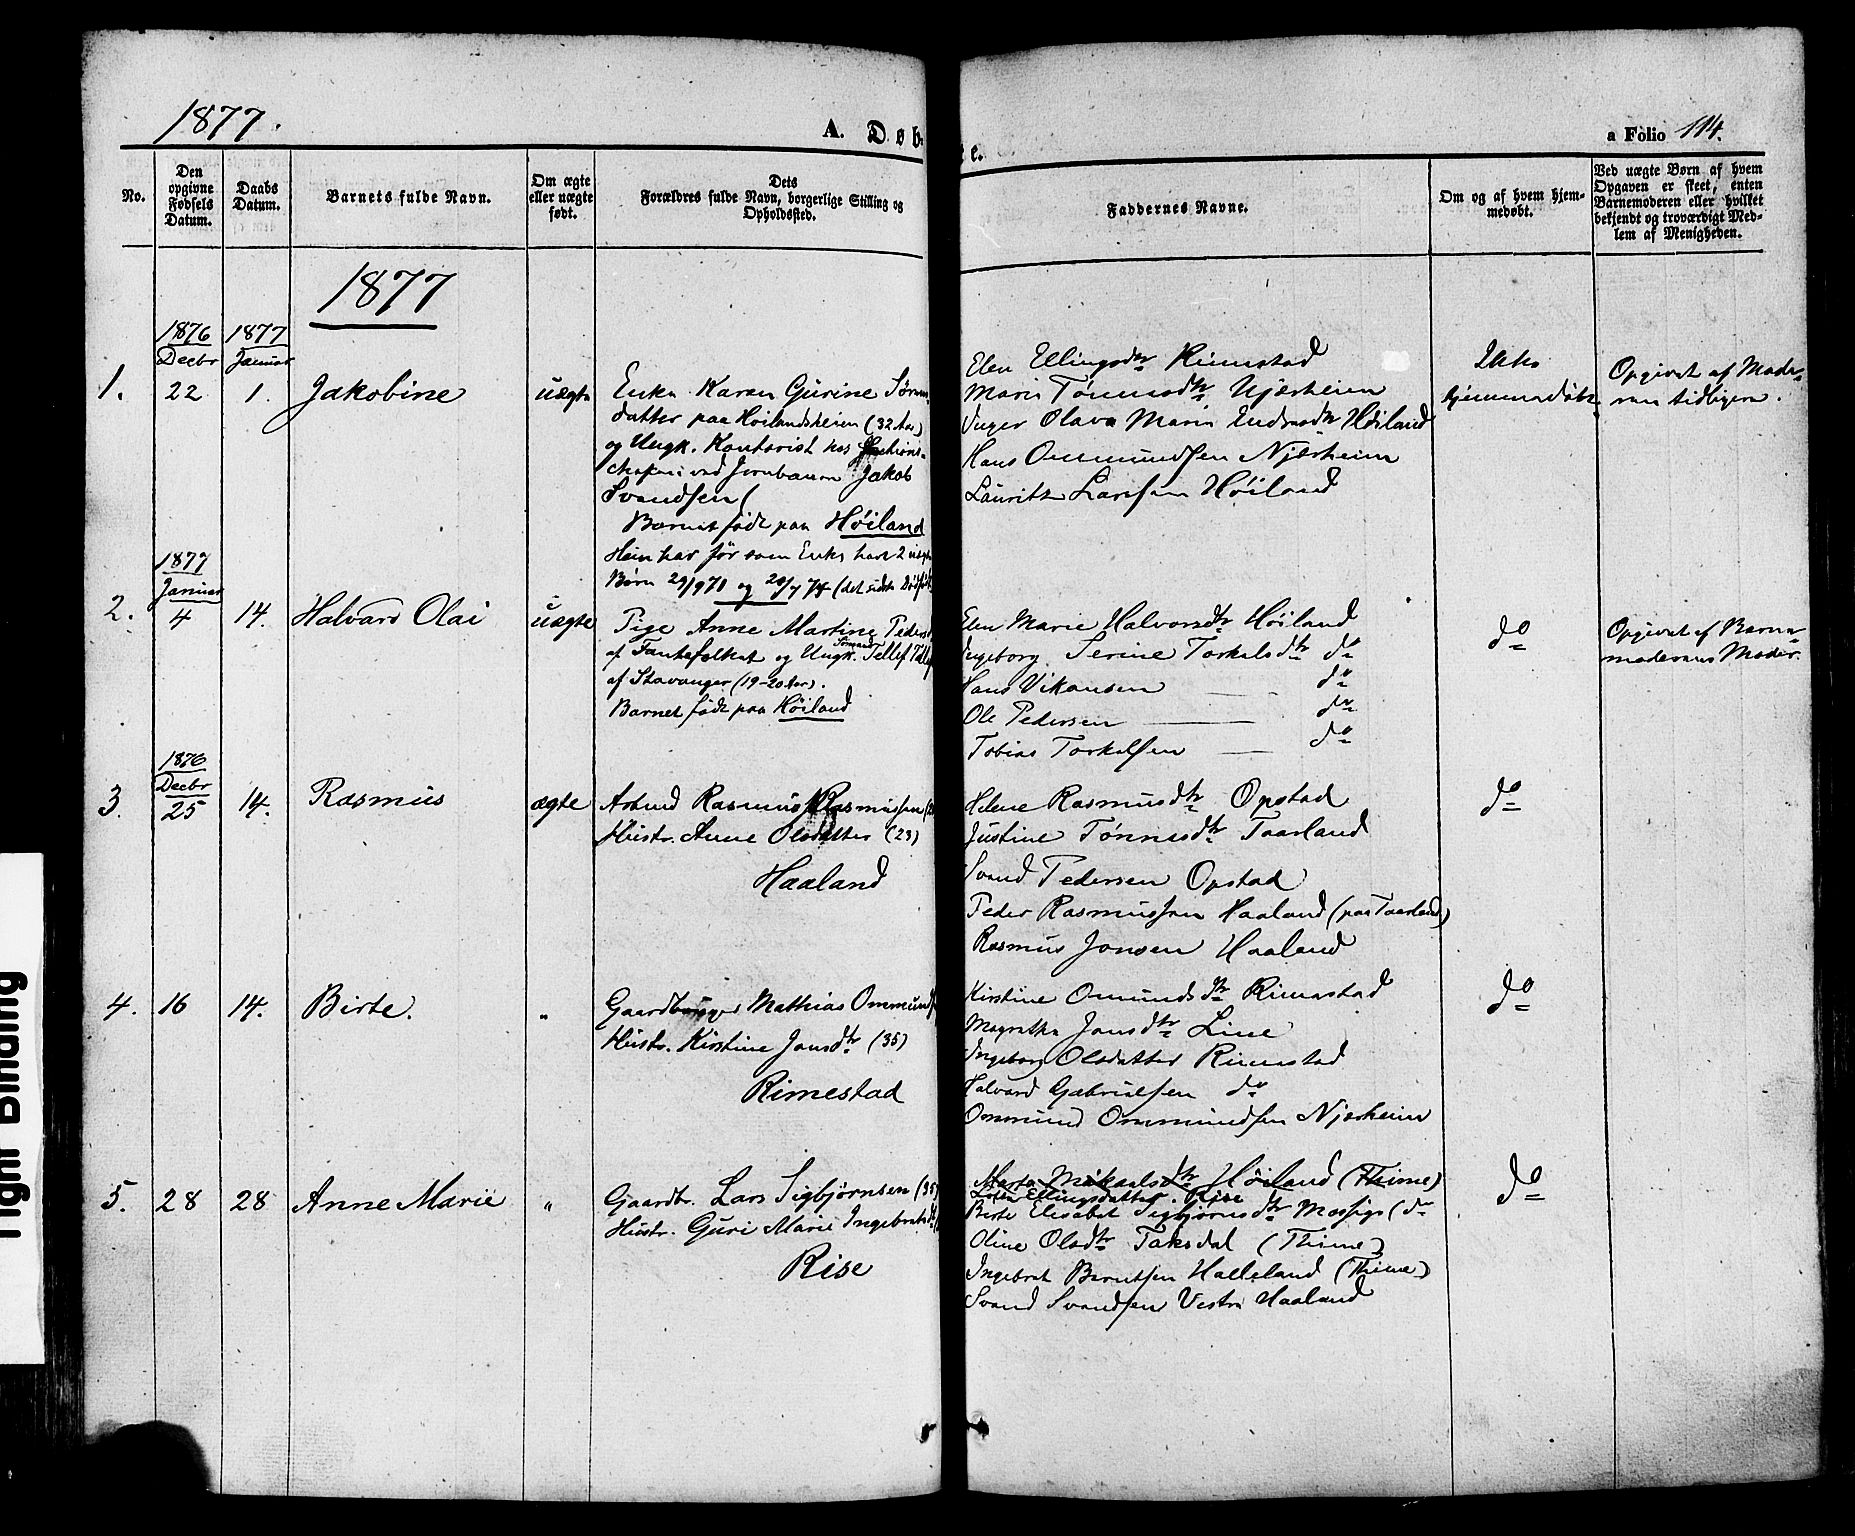 1877.
A. Døb-
e.
a Folio 114.
No.
Den opgivne Fødsels Datum.
Daabs Datum.
Barnets fulde Navn.
Om ægte eller uægte født.
Dets Forældres fulde Navn, borgerlige Stilling og Opholdssted.
Faddernes Navne.
Om og af hvem hjemmedøbt.
Ved uægte Børn af hvem Opgaven er skeet, enten Barnemoderen eller hvilket bekjendt og troværdigt Medlem af Menigheden.
1877
1876 1877
Decbr Januar
1. 22 1. Jakobine uægte
Enke Karen Gurine Søren-
datter paa Høilandsheien (32 Aar)
og Ungk. Kontorist hos
ved Jernbanen Jakob
Svendsen (
Barnet født paa Høiland
Hun har før som Enke havt 2 uægte
Børn 29/9 71 og 28/7 74 (det sidste
Elen Ellingsdtr Rimestad
Marie Tønnesdtr Njærheim
Olava Marie Endresdtr Høiland
Hans Ommundsen Njærheim
Lauritz Larssen Høiland
Ikke
hjemmedøbt
Opgivet af Mode-
ren tidligere.
1877
Januar
2. 4 14. Halvard Olai uægte
Pige Anne Martine Peders
af Fantefølket og Ungk. Sømand Tellef
af Stavanger (19-20 Aar).
Barnet født paa Høiland
Elen Marie Halvorsdtr Høiland
Ingeborg Serine Torkelsdtr do
Hans Vikansen do
Ole Pedersen do
Tobias Torkelsen do
do
Opgivet af Barne-
moderens Moder.
1876
Decbr
3. 25 14. Rasmus ægte
Arbmd Rasmus Rasmussen
Hustr. Anne Olsdatter (23)
Haaland
Helene Rasmusdtr Opstad
Justine Tønnesdtr Taarland
Svend Pedersen Opstad
Peder Rasmussen Haaland (paa Taarland)
Rasmus Jonsen Haaland
do
4. 16 14. Birte. "
Gaardbruger Mathias Ommunds
Hustr. Kirstine Jonsdtr (35)
Rimestad
Kirstine Omundsdtr Rimestad
Magrethe Jonsdtr Line
Ingeborg Olsdatter Rimestad
Halvard Gabrielsen do
Ommund Ommundsen Njærheim
do
5. 28 28 Anne Marie "
Gaardbr. Lars Sigbjørnsen (35)
Hustr. Guri Marie Ingebretsdtr
Rise
Marta Mikaelsdtr Høiland (Thime)
Ellingsdatter Rise
Birte Elisabet Sigbjørnsdtr Mossige (do
Oline Olsdtr Taksdal (Thime)
Ingebret Berntsen Halleland (Thime)
Svend Svendsen Vestre Haaland
do
Tight Binding